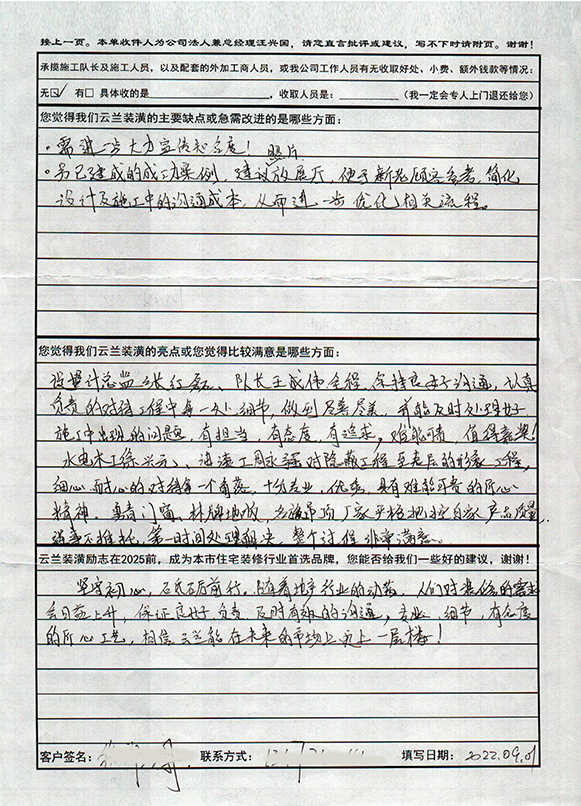 接上一页。本单收件人为公司法人兼总经理汪兴国，请您直言批评或建议，写不下时请附页。谢谢！
承揽施工队长及施工人员，以及配套的外加工商人员，或我公司工作人员有无收取好处、小费、额外钱款等情况：
无☑ 有□ 具体收的是 ，收取人员是： （我一定会专人上门退还给您）
您觉得我们云兰装潢的主要缺点或急需改进的是哪些方面：
·需进一步大力宣传知名度！
照片
·另已建成的成功案例，建议放展厅，便于新老顾客参考，简化
设计及施工中的沟通成本，从而进一步优化相关流程。
您觉得我们云兰装潢的亮点或您觉得比较满意是哪些方面：
设计总监张红磊、队长王成伟全程，保持良好沟通，认真
负责的对待工程中每一处细节，做到尽善尽美，并能及时处理好
施工中出现的问题，有担当，有态度，有追求，难能可贵，值得嘉奖！
水电木工徐兴云、油漆工周永强对隐蔽工程至表层的形象工程，
细心耐心的对待每一个角落，十分专业，优秀，具有难能可贵的匠心
精神，门窗、地板、吊顶厂家严格把控自家产品质量，
遇事不推托，第一时间处理解决，整个过程非常满意。
云兰装潢励志在2025前，成为本市住宅装修行业首选品牌，您能否给我们一些好的建议，谢谢！
坚守初心，砥砺前行。随着地产行业的动荡，人们对装修的需求
会日益上升，保证良好负责，及时有效的沟通，专业、细节，有态度
的匠心工艺，相信云兰能在未来的市场上更上一层楼！
客户签名： 联系方式： 填写日期：2022.09.01